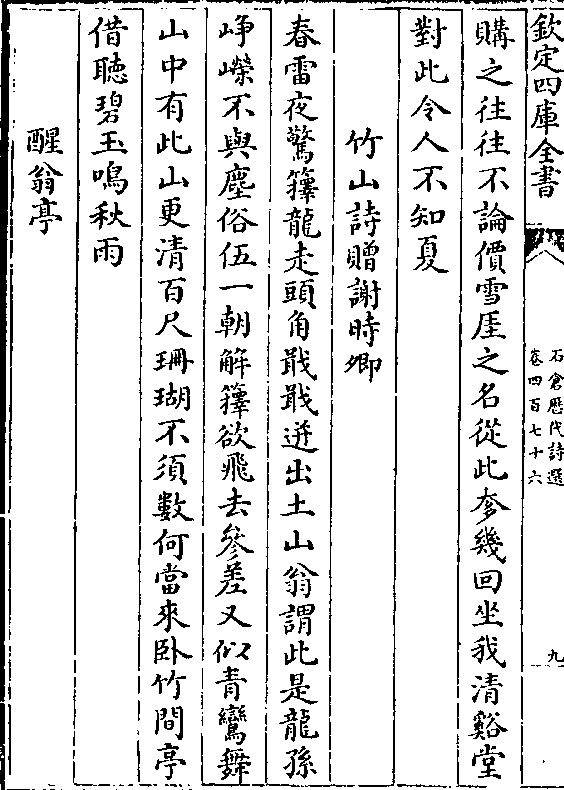 欽定四庫全書
石倉歷代詩選
卷四百七十六
九
購之往往不論價雪厓之名從此奓幾回坐我清谿堂
對此令人不知夏
竹山詩贈謝時卿
春雷夜驚籜龍走頭角戢戢迸出土山翁謂此是龍孫
崢嶸不與塵俗伍一朝解籜欲飛去參差又似青鸞舞
山中有此山更清百尺珊瑚不須數何當來卧竹間亭
借聽碧玉鳴秋雨
醒翁亭